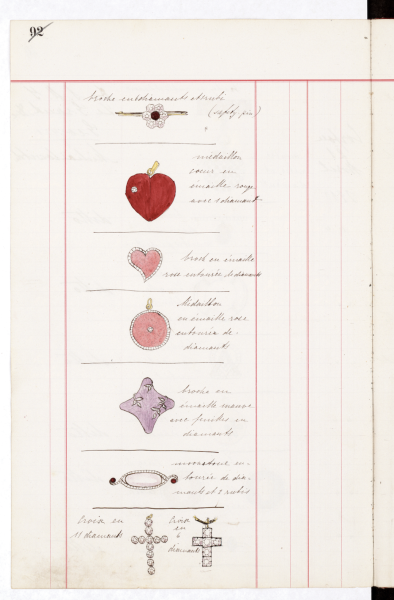 92
broche en diamants et rubis
(safety pin)
medaillon
coeur en
émaille rouge
avec 1 diamant
broch en émaille
rose entourée de diamants
Médaillon
en émaille rose
entourée de
diamants
broche en
émaille mauve
avec feuilles en
diamants
moonstone en-
tourée de dia-
mants et 2 rubis
Croix en
11 diamants
Croix
en
6
diamants